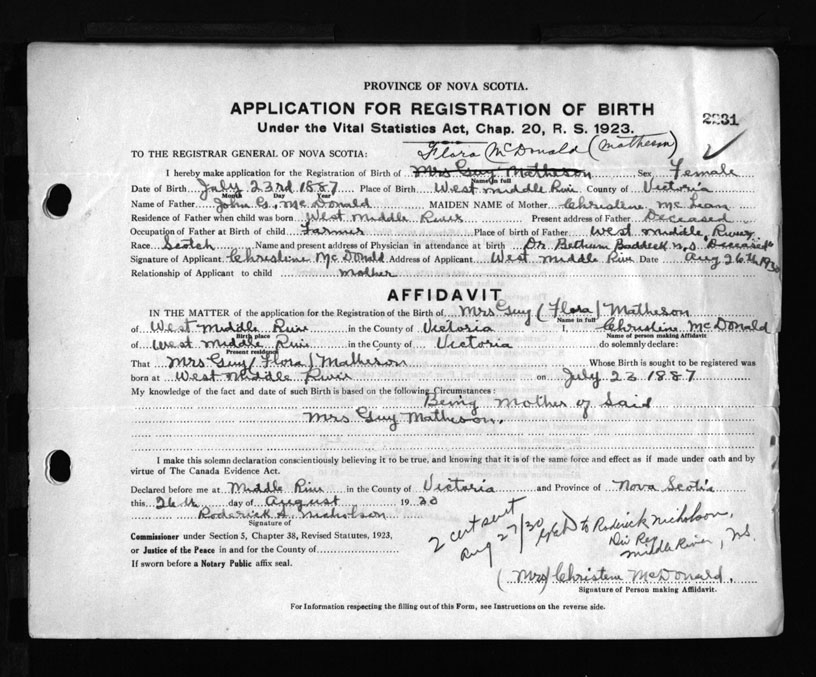 PROVINCE OF NOVA SCOTIA.
APPLICATION FOR REGISTRATION OF BIRTH
2231
Under the Vital Statistics Act, Chap. 20, R. S. 1923.
TO THE REGISTRAR GENERAL OF NOVA SCOTIA: Flora McDonald (Matheson)
I hereby make application for the Registration of Birth of Mrs Guy Matheson Sex Female
Name in full
Date of Birth July 23rd 1887 Place of Birth West Middle River County of Victoria
Month Day Year
Name of Father John G. McDonald MAIDEN NAME of Mother Christene McLean
Residence of Father when child was born West Middle River Present address of Father Deceased
Occupation of Father at Birth of child Farmer Place of birth of Father West Middle River
Race Scotch Name and present address of Physician in attendance at birth Dr Bethum Baddeck N.S "Deceased"
Signature of Applicant Christine McDonald Address of Applicant West Middle River Date Aug 26th 1930
Relationship of Applicant to child mother
AFFIDAVIT
IN THE MATTER of the application for the Registration of the Birth of Mrs Guy (Flora) Matheson
Name in full
of West Middle River in the County of Victoria I, Christine McDonald
Birth place Name of person making Affidavit
of West Middle River in the County of Victoria do solemnly declare:
Present residence
That Mrs Guy (Flora) Matheson Whose Birth is sought to be registered was
born at West Middle River on July 23 1887
My knowledge of the fact and date of such Birth is based on the following Circumstances:
Being Mother of Said
Mrs Guy Matheson.
I make this solemn declaration conscientiously believing it to be true, and knowing that it is of the same force and effect as if made under oath and by
virtue of The Canada Evidence Act.
Declared before me at Middle River in the County of Victoria and Province of Nova Scotia
this 26th day of August 1930
Roderick A Nicholson
Signature of
Commissioner under Section 5, Chapter 38, Revised Statutes, 1923,
or Justice of the Peace in and for the County of
If sworn before a Notary Public affix seal.
2 cert sent
Aug 27/30 to Rodrick Nicholson,
Div Reg
Middle River, N.S.
(Mrs) Christene McDonald.
Signature of Person making Affidavit.
For Information respecting the filling out of this Form, see Instructions on the reverse side.